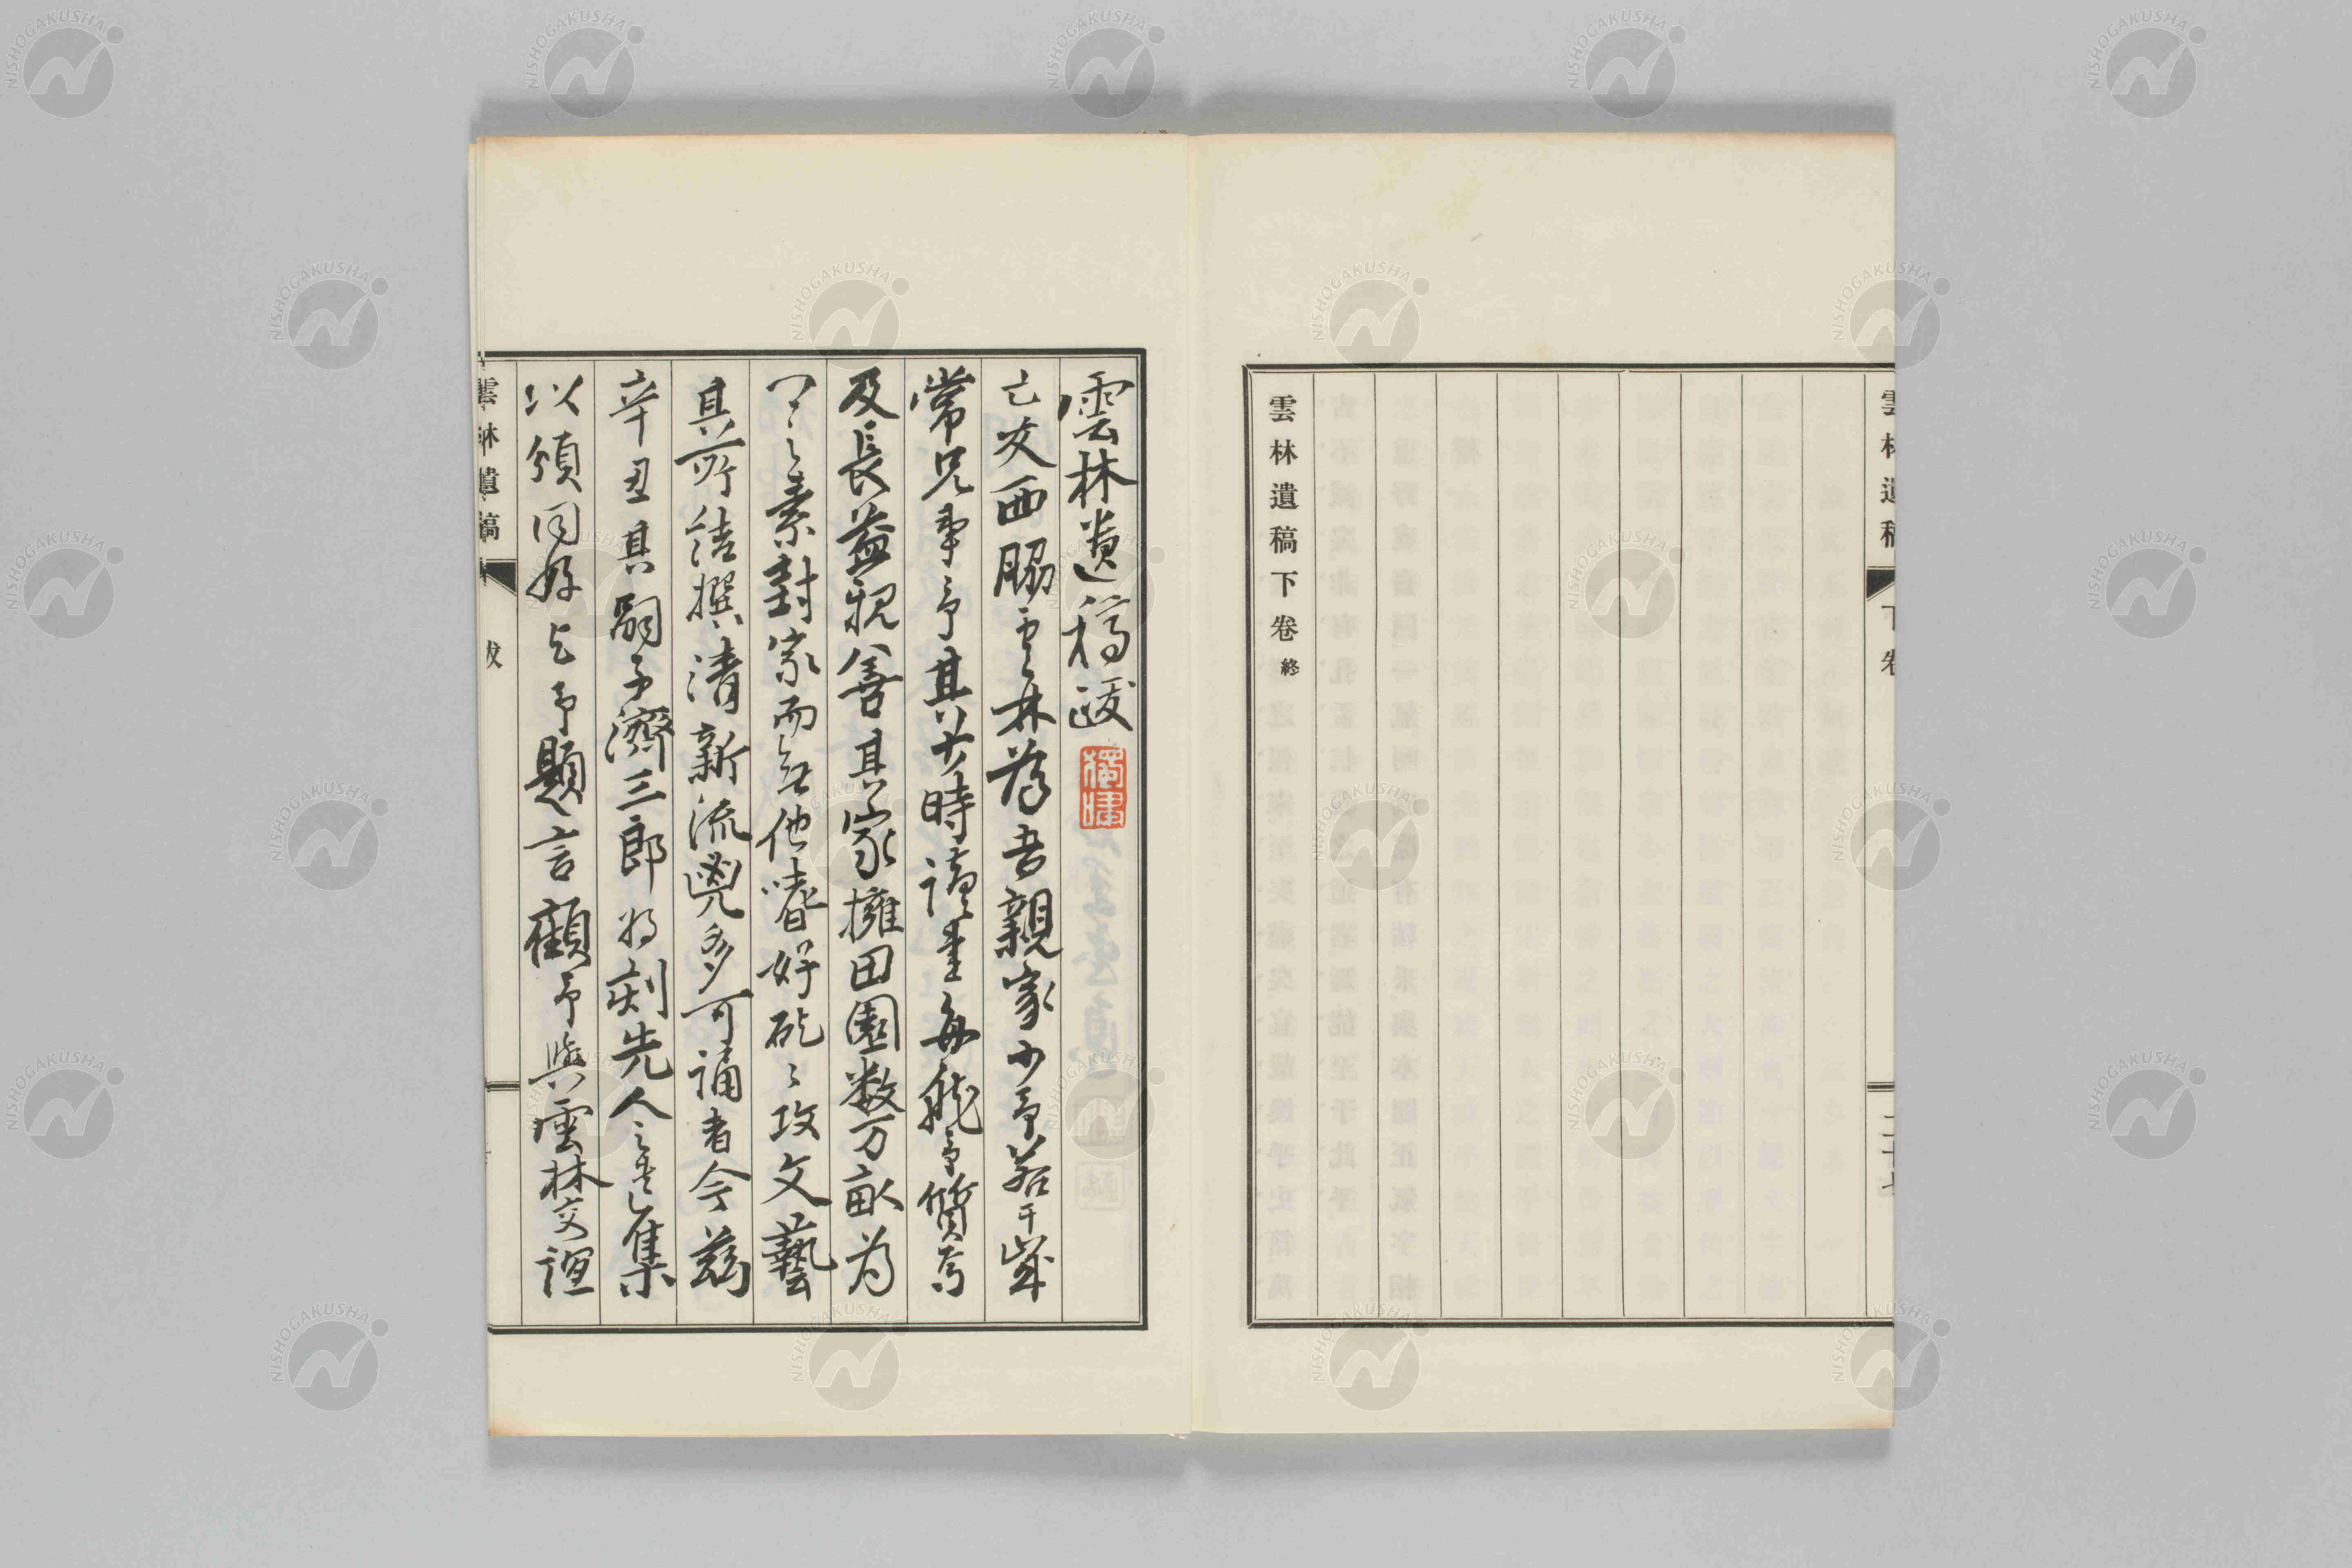 雲林遺稿
下卷
二十七
雲林遺稿下卷終
雲林遺稿跋
獨嘯
亡友西脇雲林為吾親家少予若干歲
常兄事予其少時讀書每就予質焉
及長益親善其家擁田園数万畝为
素封家而無他嗜好矻々攻文藝
其所結撰清新流鬯多可誦者今茲
辛丑其嗣子濟三郎将刻先人之集
以頒同好乞予題言顧予與雲林交誼
雲林遺稿
跋
NISHOGAKUSHA